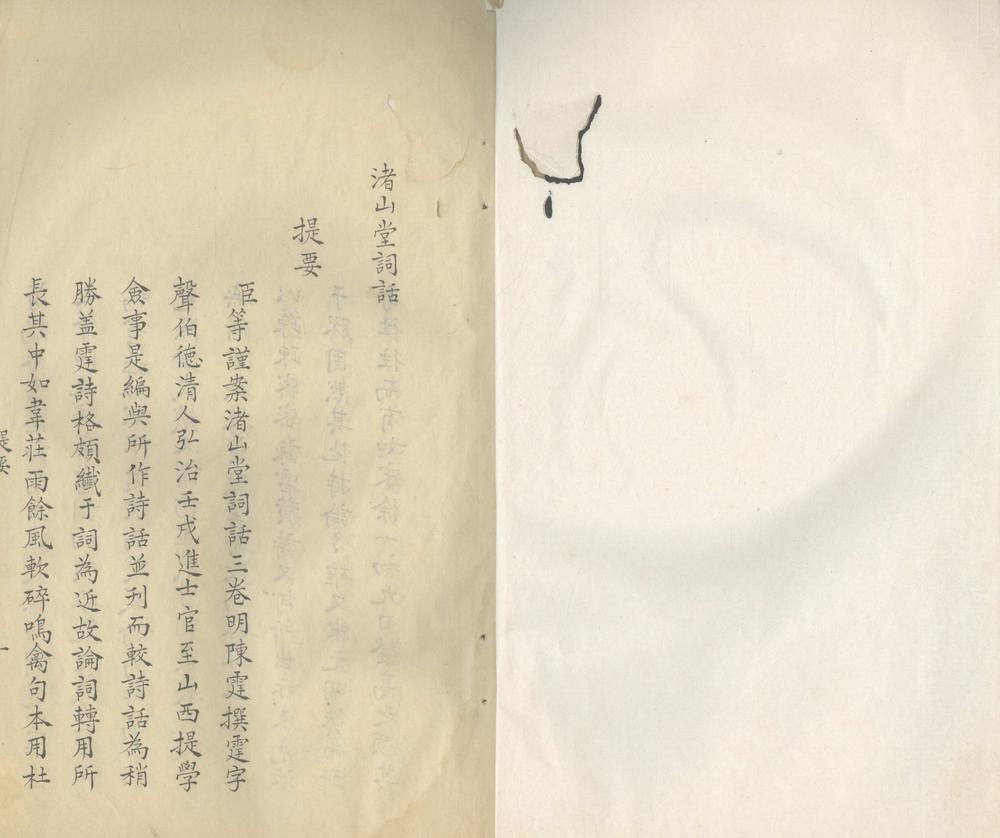 渚山堂詞話
提要
臣等謹案渚山堂詞話三卷明陳霆撰霆字
聲伯德清人弘治壬戌進士官至山西提學
僉事是編與所作詩話並刋而較詩話為稍
勝盖霆詩格頗纎于詞為近故論詞轉用所
長其中如韋莊雨餘風軟碎鳴禽句本用杜
提要
一